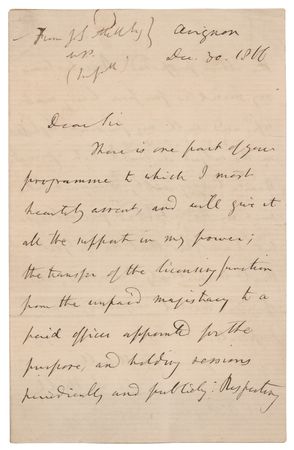 From J S Mill Esq
M.P.
Avignon
Dec. 30. 1866
Dear Sir
There is one part of your
programme to which I most
heartily assent, and will give it
all the support in my power;
the transfer of the licensing function
from the unpaid magistracy to a
paid officer appointed for the
purpose, and holding sessions
periodically and publicly: Respecting